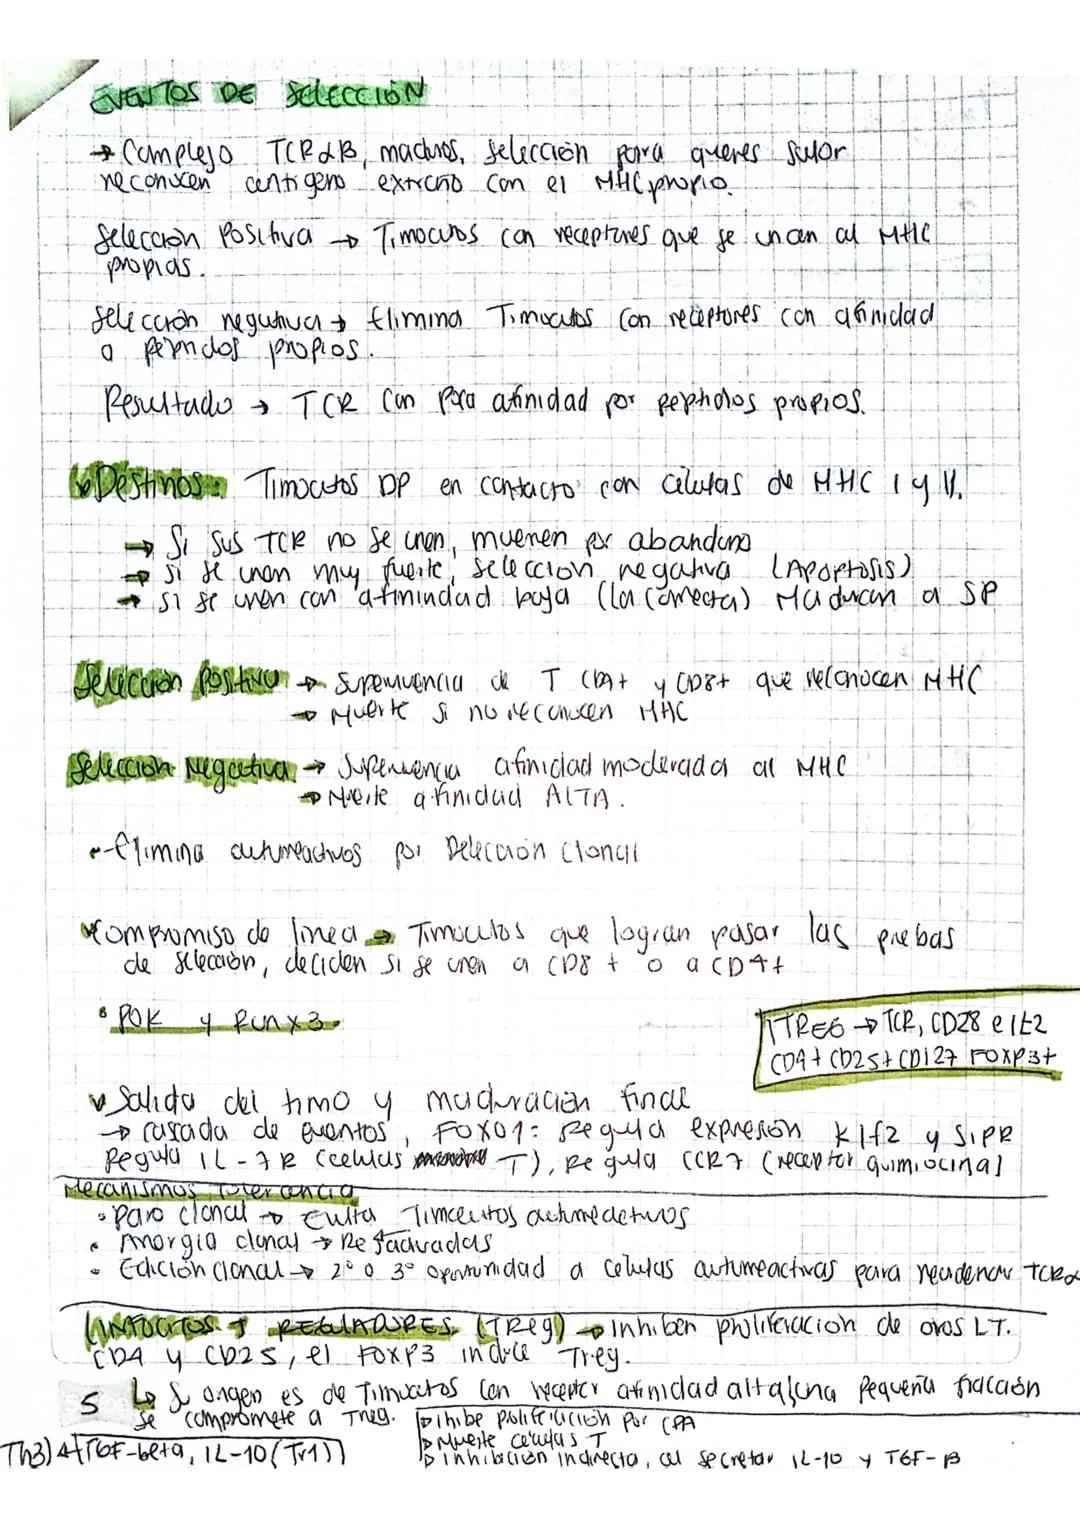 EVENTOS DE SELECCIÓN
→ Complejo TCRαB, maduros, selección para queres solor
reconocen antigeno extraño con el MHC propio.
Selección Positiva → Timocitos con receptores que se unan al MHC
propias.
Selección negativa → Elimina Timocitos con receptores con afinidad
a péptidos propios.
Resultado → TCR con poca afinidad por peptidos propios.
Destinos: Timocitos DP en contacto con células de MHC I y II.
→ Si sus TCR no se unen, mueren por abandono
→ Si se unen muy fuerte, selección negativa (Apoptosis)
→ Si se unen con afinindad baja (la correcta) Maduran a SP
Selección Positiva → Supervivencia de T CD4+ y CD8+ que reconocen MHC
→ Muerte si no reconocen MHC
Selección Negativa → Supervivencia afinidad moderada al MHC
→ Muerte afinidad ALTA.
- Elimina autorreactivos por Delección Clonal
Compromiso de linea → Timocitos que logran pasar las prebas
de selección, deciden si se unen a CD8+ o a CD4+
• POK y Runx3.
TREG → TCR, CD28 e IL2
CD4+ CD25+ CD127 FOXP3+
Salida del timo y maduración final
→ cascada de eventos, FOXO1: Regula expresión Klf2 y S1PR
Regula IL-7R (celulas T), Regula CCR7 (receptor quimiocina)
Mecanismos Tolerancia
• Paro clonal → Evita Timocitos autoreactivos
• Anergia clonal →
• Edición clonal → 2° o 3° oportunidad a celulas autorreactivas para reordenar TCRα
LINFOCITOS T REGULADORES (TReg) → Inhiben proliferación de otros LT.
CD4 y CD25, el FOXP3 induce Treg.
5 ↳ Su origen es de Timocitos con receptor afinidad alta/una pequeña fracción
se compromete a Treg.
→ Inhibe proliferación por CPA
→ Muerte celulas T
→ Inhibición indirecta, al secretar IL-10 y TGF-β
Th3) TGF-beta, IL-10 (Tr1)